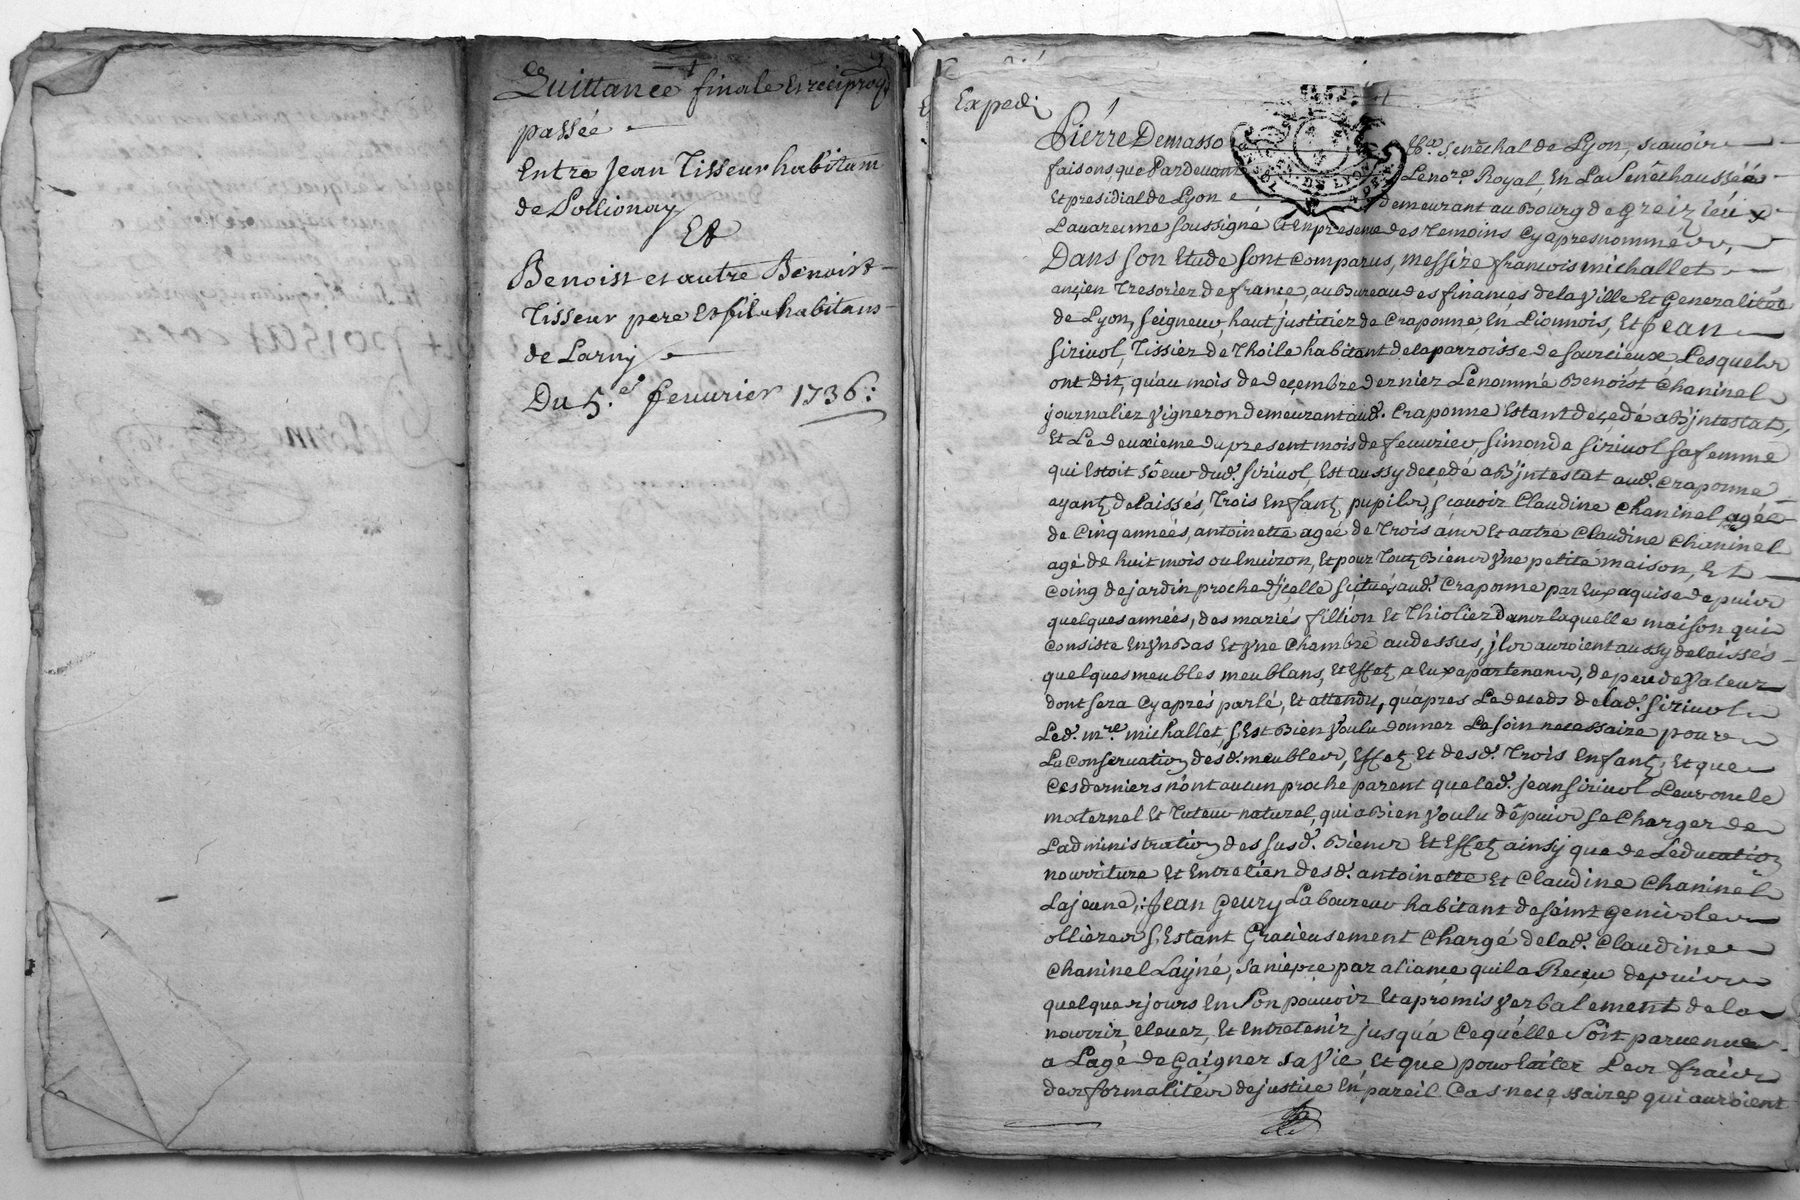 Quittance finale Et reciproq
passée
Entre Jean Tisseur habitant
de Pollionay
Et
Benoist et autre Benoist
Tisseur pere Et fils habitans
de Larny
Du 5.e feuurier 1736:
Exped:
Pierre Demasso Senechal de Lyon, scauoir
faisons, que Pardeuant Le no.re Royal En La Senéchaussée
Et presidial de Lyon demeurant au Bourg de greizieu
Lauarenne soussigné Et En presence des Temoins Cy apres nommés,
Dans son Etude sont comparus, messire francois michallet
ancien Tresorier de france, au Bureau des finances de la Ville Et Generalité
de Lyon, seigneur, haut justicier de Craponne, En Lionnois, Et Jean
Siriuol, Tissier de Thoile habitant de la parroisse de sourcieux Lesquels
ont dit, qu'au mois de decembre dernier Le nommé Benoist Chaninel
journalier Vigneron demeurant aud. Craponne Estant decedé abjntestat,
Et Le deuxieme du present mois de feuurier Simonde Siriuol sa femme
qui Estoit sœur dud. Siriuol, Est aussy decedé abjntestat aud. Craponne
ayant delaissés, Trois Enfants pupils, scauoir Claudine Chaninel agée
de Cinq années, antoinette agée de Trois ans Et autre Claudine Chaninel
agé de huit mois ou Enuiron, Et pour Touts Biens Vne petite maison, Et
Coing de jardin proche djcelle situés aud. Craponne par Eux aquise depuis
quelques années, des mariés fillion Et Thiolier Dans laquelle maison qui
Consiste En Vn Bas Et Vne Chambre au dessus, jls auroient aussy delaissés
quelques meubles meublans, Et Effets a Eux apartenans, de peu de Valeur
dont sera Cy aprés parlé, Et attendu, qu'apres Le deceds de lad. Siriuol
Led. m.re michallet, s'Est Bien Voulu donner Le soin necessaire pour
La Conseruation desd. meubles, Effets Et desd. Trois Enfants, Et que
Ces derniers n'ont aucun proche parent que led. jean Siriuol Leur oncle
maternel Et Tuteur naturel, qui a Bien Voulu depuis se Charger de
L'administration des susd. Biens Et Effets ainsy que de L'education
nourriture Et Entretien desd. antoinette Et Claudine Chaninel
La jeune, Jean Geury Laboureur habitant de saint Genis les
ollieres s'Estant Gracieusement Chargé de lad. Claudine
Chaninel L'ayné, sa niepce par aliance qu'il a Reçeu depuis
quelques jours En Son pouuoir Et a promis Verbalement de la
nourrir, Eleuer, Et Entretenir jusqu'a Ce qu'elle Soit paruenue
a L'age de Gaigner sa Vie Et que pour Euiter Les frais
des formalités de justice En pareil Cas necessaires qui auroient